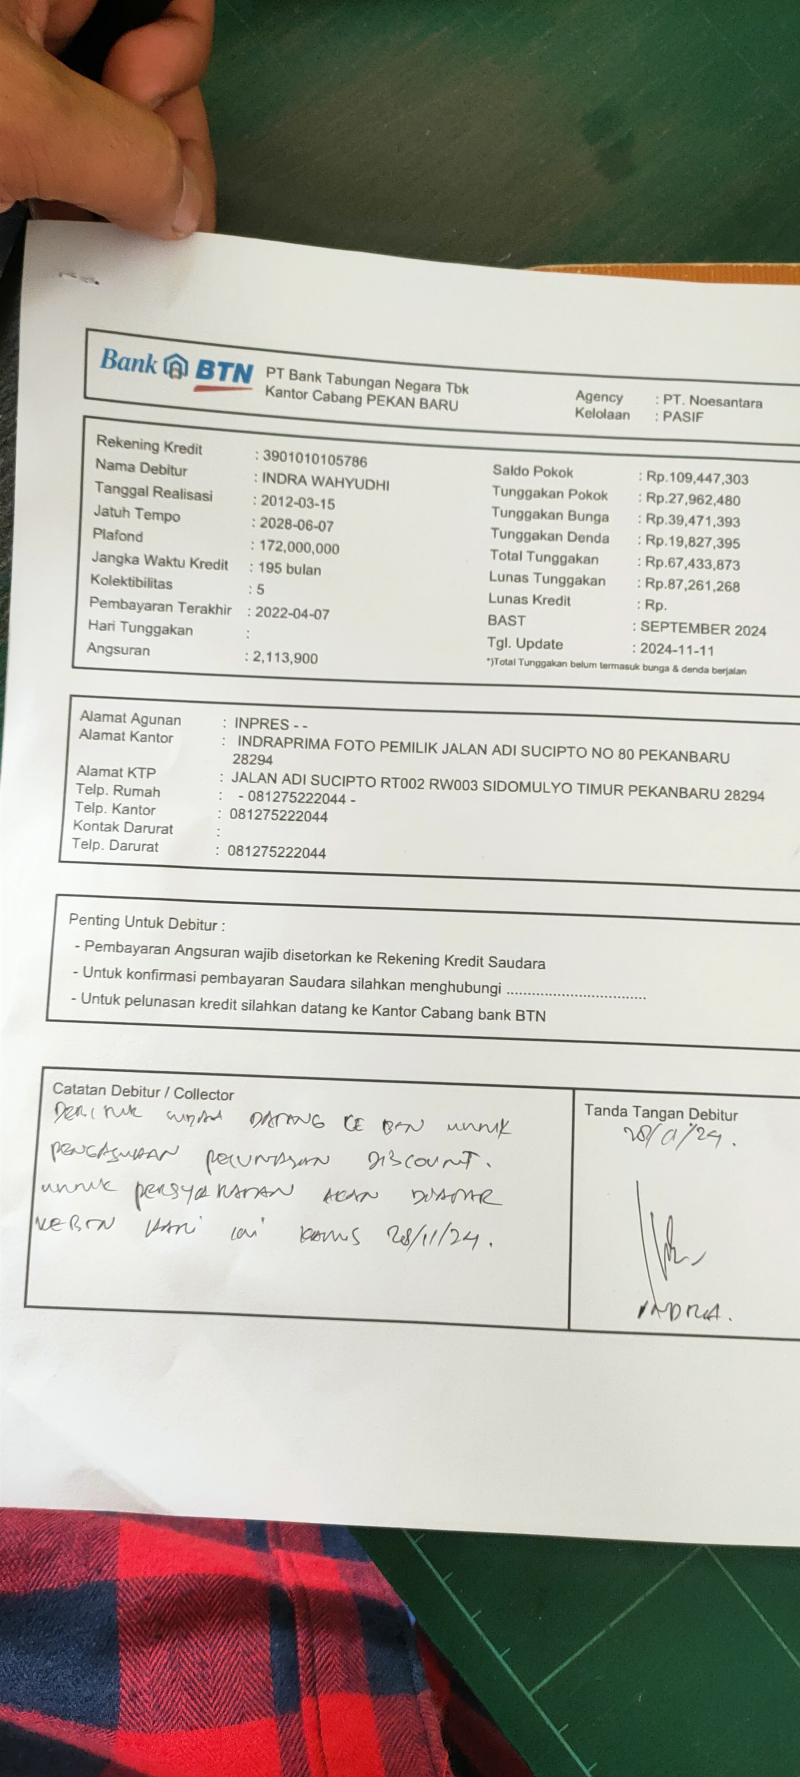 Bank BTN PT Bank Tabungan Negara Tbk
Kantor Cabang PEKAN BARU
Agency : PT. Noesantara
Kelolaan : PASIF
Rekening Kredit : 3901010105786
Nama Debitur : INDRA WAHYUDHI
Tanggal Realisasi : 2012-03-15
Jatuh Tempo : 2028-06-07
Plafond : 172,000,000
Jangka Waktu Kredit : 195 bulan
Kolektibilitas : 5
Pembayaran Terakhir : 2022-04-07
Hari Tunggakan :
Angsuran : 2,113,900
Saldo Pokok : Rp.109,447,303
Tunggakan Pokok : Rp.27,962,480
Tunggakan Bunga : Rp.39,471,393
Tunggakan Denda : Rp.19,827,395
Total Tunggakan : Rp.67,433,873
Lunas Tunggakan : Rp.87,261,268
Lunas Kredit : Rp.
BAST : SEPTEMBER 2024
Tgl. Update : 2024-11-11
*)Total Tunggakan belum termasuk bunga & denda berjalan
Alamat Agunan : INPRES - -
Alamat Kantor : INDRAPRIMA FOTO PEMILIK JALAN ADI SUCIPTO NO 80 PEKANBARU
28294
Alamat KTP : JALAN ADI SUCIPTO RT002 RW003 SIDOMULYO TIMUR PEKANBARU 28294
Telp. Rumah : - 081275222044 -
Telp. Kantor : 081275222044
Kontak Darurat :
Telp. Darurat : 081275222044
Penting Untuk Debitur :
- Pembayaran Angsuran wajib disetorkan ke Rekening Kredit Saudara
- Untuk konfirmasi pembayaran Saudara silahkan menghubungi ..................................
- Untuk pelunasan kredit silahkan datang ke Kantor Cabang bank BTN
Catatan Debitur / Collector
SUDAH DATANG KE BTN UNTUK
PENGAJUAN PELUNASAN DISCOUNT.
UNTUK PERSYARATAN AKAN DIANTAR
KE BTN HARI INI KAMIS 28/11/24.
Tanda Tangan Debitur
28/11/24.
INDRA.